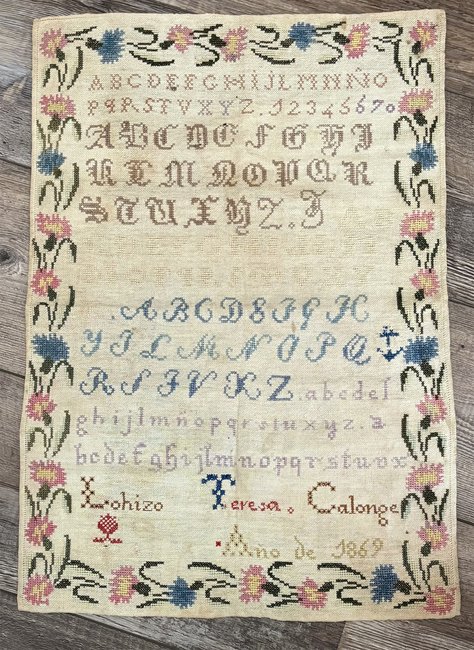 ABCDEFGHIJLMNÑO
PQRSTVXYZ.1234567o
ABCDEFGHIJ
KLMNOPQR
STUXYZ.J
ABCDEFGH
YJLMNOPQ
RSTVXZ.abcdef
ghijlmñopqrstuxyz.a
bcdefghijlmnopqrstuvx
Lohizo Teresa. Calonge
Año de 1869